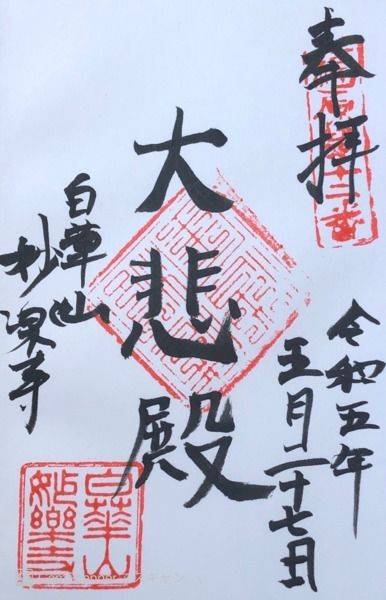 奉拝
令和五年
五月二十七日
大悲殿
白華山
妙楽寺
白華山
妙樂寺